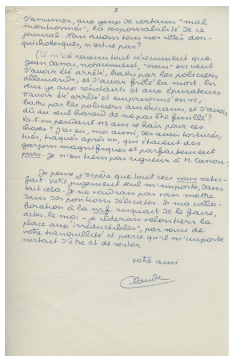 3
d'assumer, aux yeux de certains "mal
intentionnés", la responsabilité de ce
journal. Nous avons tous nos côtés don-
quichottesques, n'est-ce pas?
(Il m'est revenu tout récemment que
Jean Cassou, notamment, "nous" en veut
d'avoir été arrêté, battu par les policiers
allemands, et d'avoir frôlé la mort. En
veux-je aux résistants et aux épurateurs
d'avoir été arrêté et emprisonné
battu par les policiers américains, et d'avoir
dû au seul hasard de ne pas être fusillé?
Va-t-on pendant dix ans se haïr pour ces
choses? J'ai eu, moi aussi, des amis torturés,
tués, traqués après, qui étaient des
garçons magnifiques et parfaitement
purs. Je n'en tiens pas rigueur à M. Cassou.)
Je pense, j'espère que tout ceci vous satis-
fait. Votre jugement seul m'importe, dans
tout cela. Je ne voudrais pas vous mettre
dans des positions délicates. Si ma colla-
boration à la nrf risquait de le faire,
dites-le moi - je céderais volontiers la
place aux "irréductibles", par souci de
votre tranquillité et parce qu'il m'importe
surtout d'être et de rester
votre ami
Claude